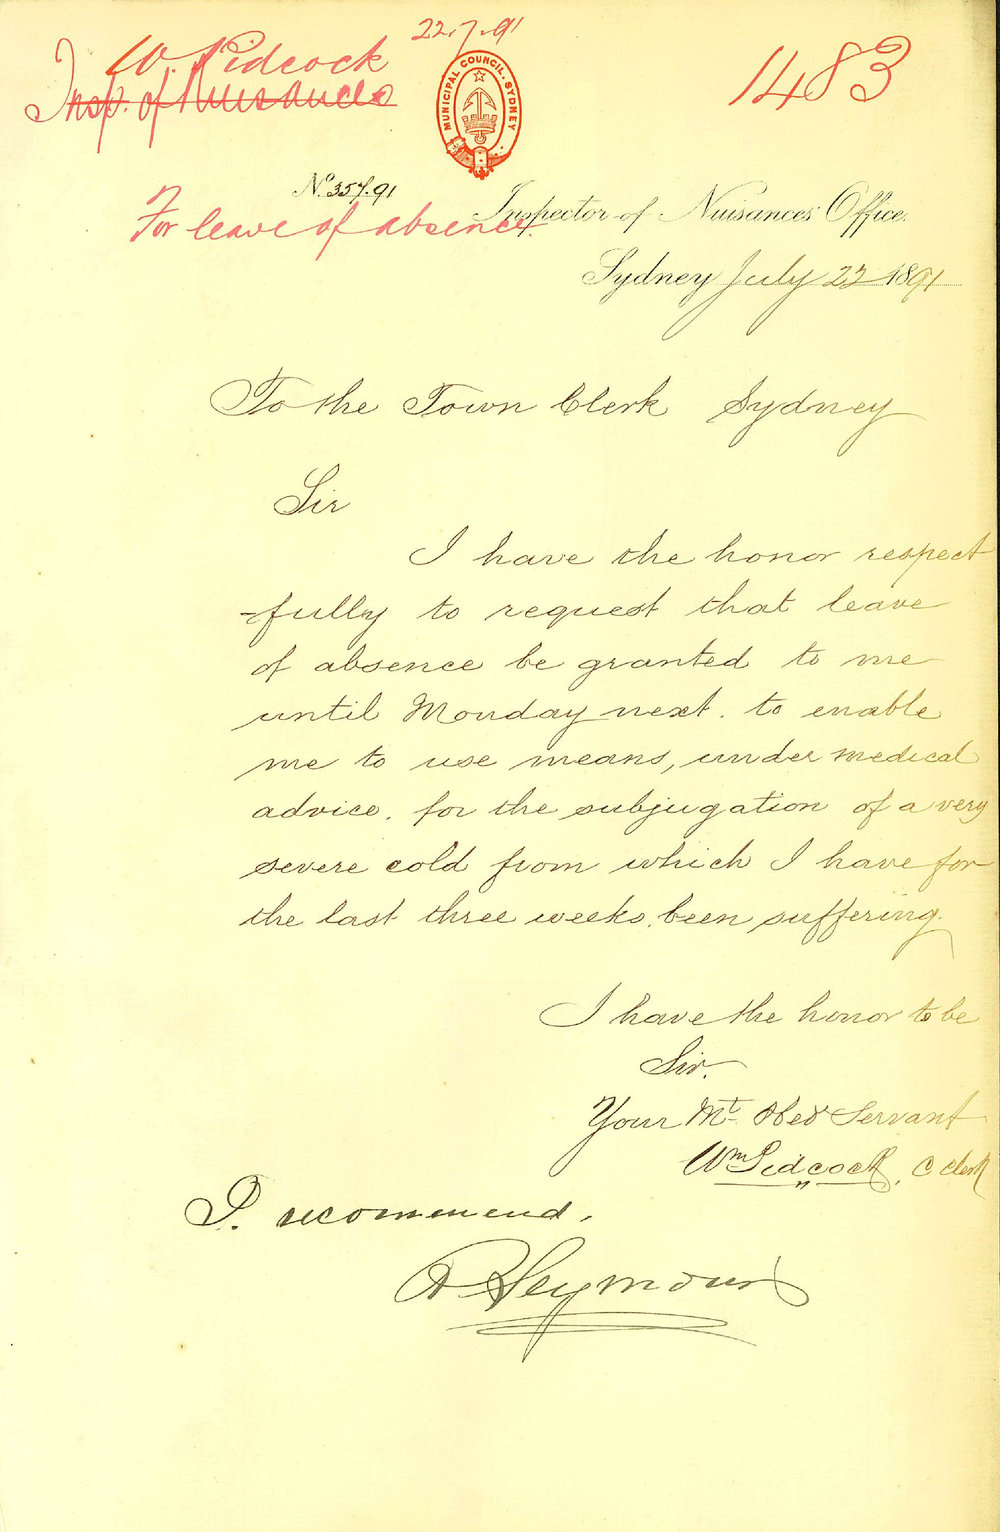 22.7.91
W. Pidcock
Insp. of Nuisances
1483
MUNICIPAL COUNCIL. SYDNEY
No. 357.91
For leave of absence.
Inspector of Nuisances' Office.
Sydney July 22 1891
To the Town Clerk Sydney
Sir
I have the honor respect
=fully to request that leave
of absence be granted to me
until Monday next. to enable
me to use means, under medical
advice. for the subjugation of a very
severe cold from which I have for
the last three weeks. been suffering.
I have the honor to be
Sir.
Your Mt Obed Servant
Wm Pidcock, C Clerk
I recommend.
R Seymour